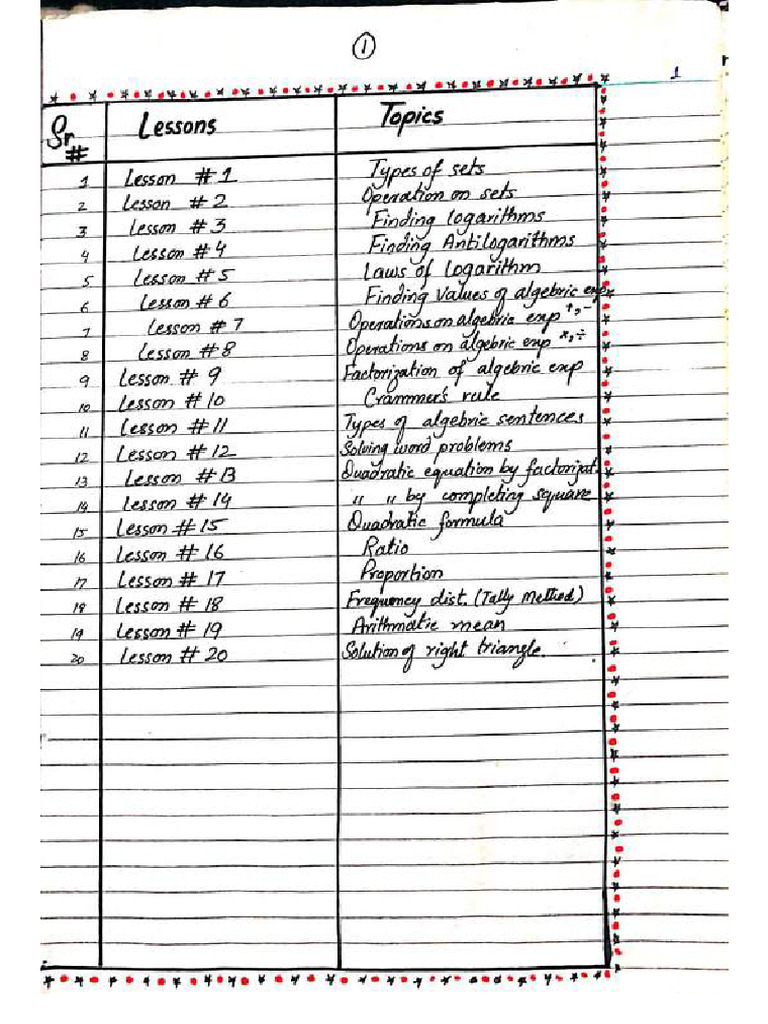 ①
1
Sr # Lessons Topics
1 Lesson # 1 Types of sets
2 Lesson # 2 Operation on sets
3 Lesson # 3 Finding logarithms
4 Lesson # 4 Finding Antilogarithms
5 Lesson # 5 Laws of logarithm
6 Lesson # 6 Finding values of algebric exp
7 Lesson # 7 Operations on algebric exp +,-
8 Lesson # 8 Operations on algebric exp *,÷
9 Lesson # 9 Factorization of algebric exp
10 Lesson # 10 Crammer's rule
11 Lesson # 11 Types of algebric sentences
12 Lesson # 12 Solving word problems
13 Lesson # 13 Quadratic equation by factorizat.
14 Lesson # 14 " " by completing square
15 Lesson # 15 Quadratic formula
16 Lesson # 16 Ratio
17 Lesson # 17 Proportion
18 Lesson # 18 Frequency dist. (Tally Method)
19 Lesson # 19 Arithmatic mean
20 Lesson # 20 Solution of right triangle.